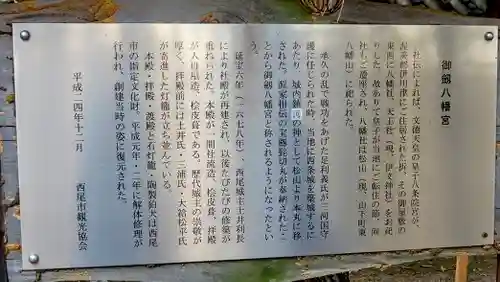 御劔八幡宮
社伝によれば、文徳天皇の皇子八条院宮が、
渥美郡伊川津にご住居された折、その御屋敷の
東西に八幡社、天王社（現、伊々神社）をお祀
りした。故ありて皇子が当地にご転住の節、両
社とも遷座され、八幡社は松山（現、山下町東
八幡社）に祀られた。
承久の乱で戦功をあげた足利義氏が三河国守
護に任じられた時、当地に西条城を築城するに
あたり、城内鎮護の神として松山より本丸に移
された。源家相伝の宝器髭切丸が奉納されたこ
とから御剱八幡宮と称されるようになったとい
う。
延宝六年（一六七八年）、西尾城主土井利長
により社殿が再建され、以後たびたびの修築が
重ねられた。本殿が一間社流造、桧皮葺、拝殿
が入母屋造、桧皮葺である。歴代城主の崇敬が
厚く、拝殿前には土井氏・三浦氏・大給松平氏
が寄進した灯籠が立ち並んでいる。
本殿・拝殿・渡殿と石灯籠・陶製狛犬は西尾
市の指定文化財。平成元年・二年に解体修理が
行われ、創建当時の姿に復元された。
平成二四年十二月
西尾市観光協会